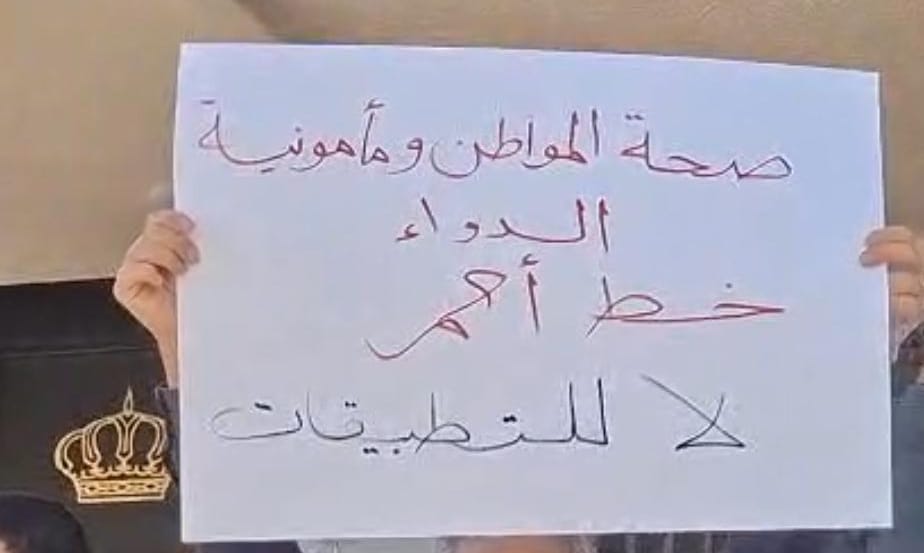 صحة المواطن ومأمونية
الدواء
خط أحمر
لا للتطبيقات